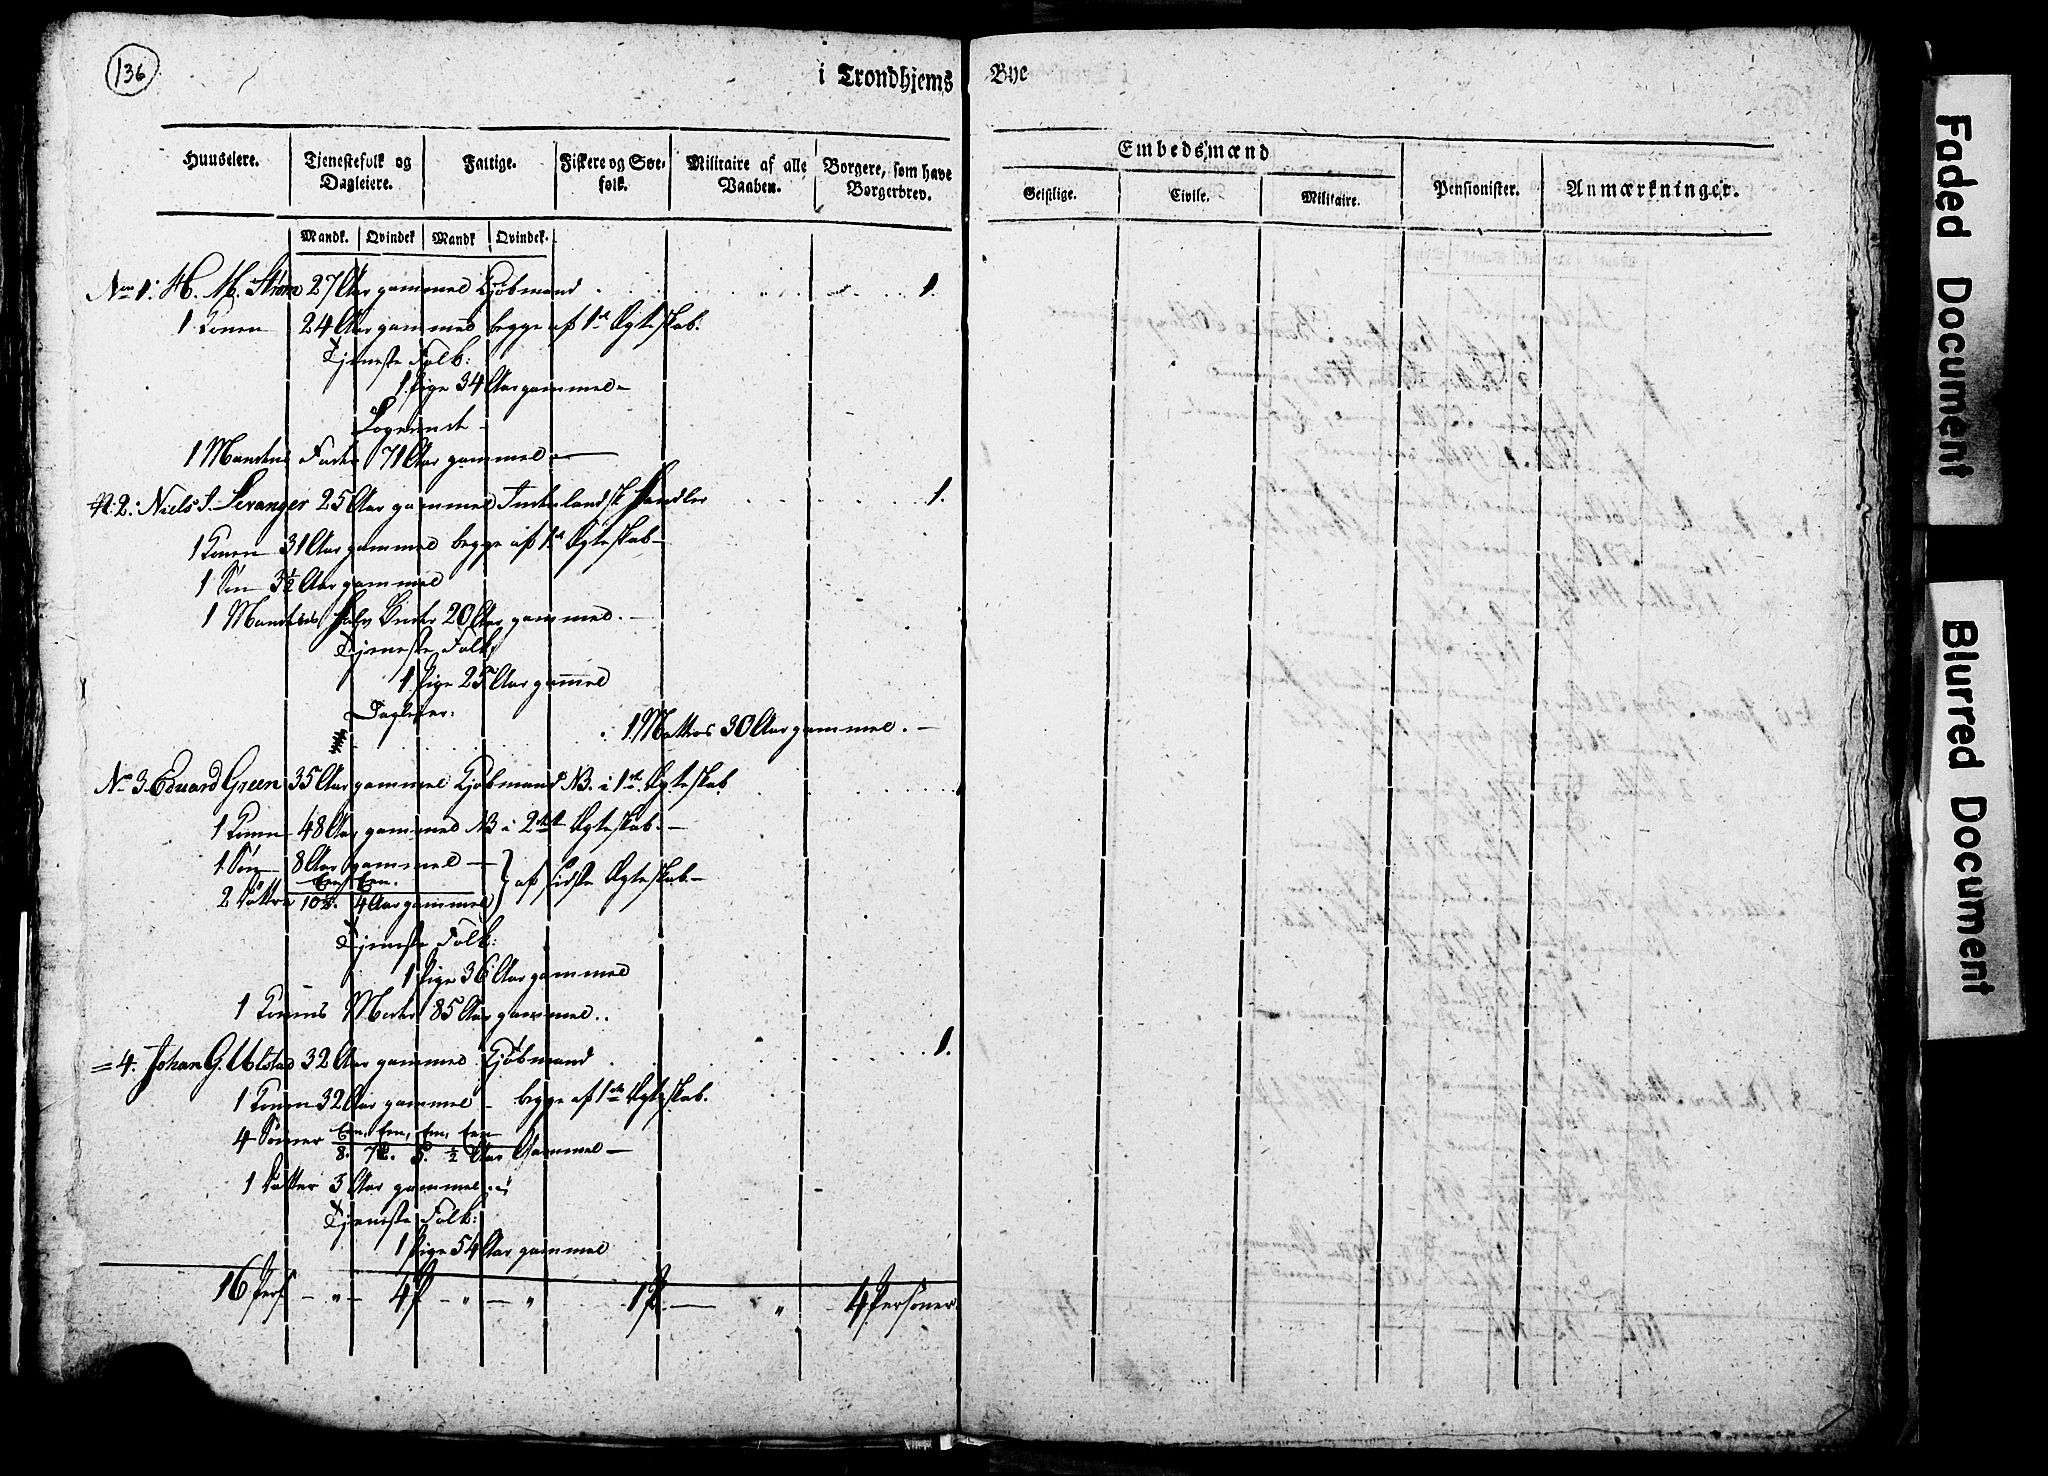 136
i Trondhjems Bye
Huuseiere. Tjenestefolk og Dagleiere. Fattige. Fiskere og Søefolk. Militaire af alle Vaaben. Borgere, som have Borgerbrev.
Embedsmænd
Geistlige. Civile. Militaire. Pensionister. Anmærkninger.
Mandk. Qvindek Mandk Qvindek.
No 1. H. M. Strøm 27 Aar gammel Kjøbmand 1.
1 Konen 24 Aar gammel begge af 1te Ægteskab.
Tjeneste Folk:
1 Pige 34 Aar gammel
Logerende
1 Mandens Fader 71 Aar gammel
N: 2. Niels J. Levanger 25 Aar gammel Indenlandsk Handler 1.
1 Konen 31 Aar gammel begge af 1te Ægteskab
1 Søn 3½ Aar gammel
1 Mandens Halv 20 Aar gammel.
Tjeneste Folk:
1 Pige 25 Aar gammel
Dagleier:
1 Matros 30 Aar gammel.
No 3 Eduard Green 35 Aar gammel Kjøbmand NB. i 1te Ægteskab 1
1 Konen 48 Aar gammel NB i 2det Ægteskab.
1 Søn 8 Aar gammel
Een Een.
2 Døttre 10 4 Aar gammel } af sidste Ægteskab
Tjeneste Folk:
1 Pige 36 Aar gammel
1 Konens Moder 85 Aar gammel.
= 4. Johan G. Ulstad 32 Aar gammel Kjøbmand 1.
1 Konen 32 Aar gammel begge af 1te Ægteskab.
4 Sønner Een, Een, Een, Een
8. 7. 5. ½ Aar Gammel
1 Datter 3 Aar gammel
Tjeneste Folk:
1 Pige 54 Aar gammel
16 Pers — " — 4 P — " — " 1 P — " 4 Personer.
Faded Document
Blurred Document